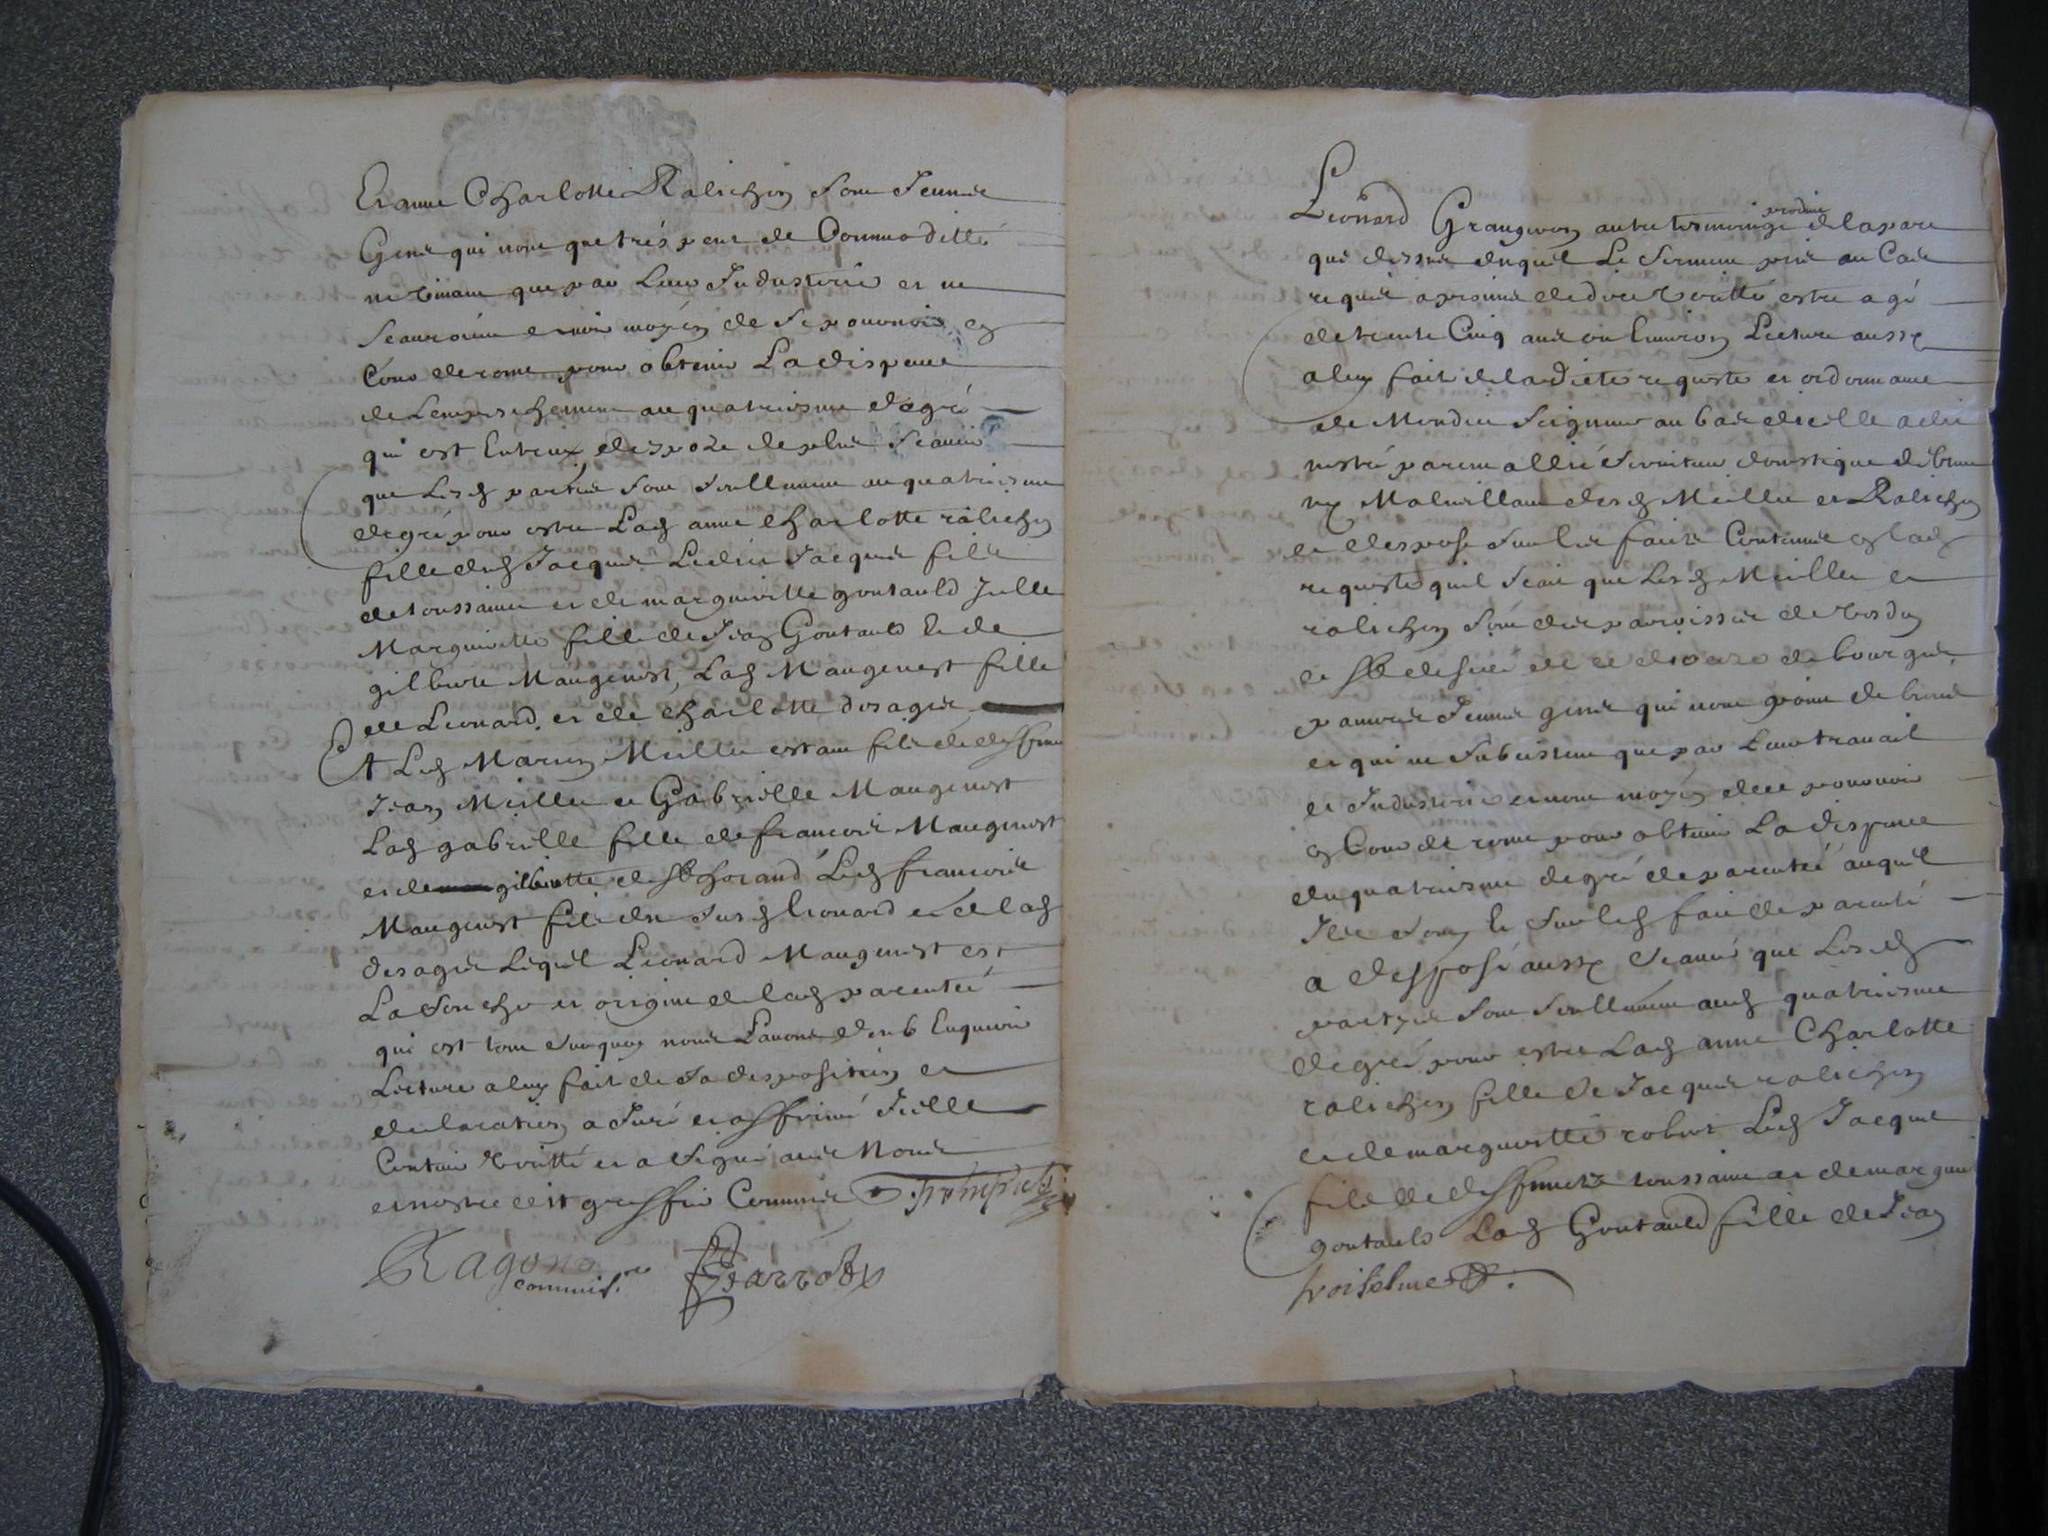 Et anne Charlotte Ralichon sont Jeunnes
Gens qui nont que tres peut de Commoditté
ne vivant que par Leur Industerie et ne
Scauroient avoir moyen de se pouvoir en
Cour de rome pour obtenir La dispence
de Lempeschement au quatriesme degré
qui est Entreux depoze de plus Scavoir
que Lesd parties sont seullement au quatriesme
degré pour estre Lad anne Charlotte ralichon
fille dud Jacques Ledit Jacques fils
de toussaint et de margueritte goutauld Jcelle
Margueritte fille de Jean Goutauld Et de
gilberte Maugenest, Lad Maugenest fille
de Leonard et de Charlotte desages
Et Led Marien Meillet estant fils de deffunt
Jean Meillet et Gabrielle Maugenest
Lad gabrielle fille de francois Maugenest
et de gilberte de Led francois
Maugenest fils du susd leonard et de lad
desages Lequel Leonard Maugenest est
La souche et origine de lad parentée
qui est tout surquoy nous Lavons Enquerir
Lecture a luy fait de sa deposition et
declaration a Juré et affirmé Jcelle
Contenir veritté et a signé avec Nous
et nostre dit greffier Commis
Ragon commis.re
Leonard Grangeron autre tesmoing produit de la part
que dessus duquel Le serment pris au Cas
requis a promis de dire veritté estre agé
de trente Cinq ans ou Environ Lecture aussy
a luy fait de ladicte requeste et ordonnance
de Mondit Seigneur au bas dicelle a dit
nestre parent allié serviteur domestique debiteur
ny Malveillant desd Meillet et Ralichon
et depose sur les faits Contenus en lad
requeste quil scait que Lesd Meillet et
ralichon sont des parroisses de
et de de
pauvres Jeunes gens qui nont point de biens
et qui ne subcistent que par Leur travail
et Industerie et nont moyen de se pouvoir
en Cour de rome pour obtenir La dispence
du quatriesme degré de parentée auquel
Ils sont Et sur led fait de parenté
a depposé aussy Scavoir que Lesd
partyes sont seullement aud quatriesme
degré pour estre Lad anne Charlotte
ralichon fille de Jacques ralichon
et de margueritte robert Led Jacques
fils de deffunctz toussaint et de margueritte
goutauld Lad Goutauld fille de Jean